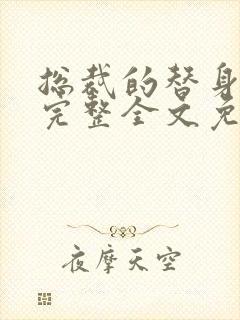 总裁的替身
完整全文免
夜摩天空